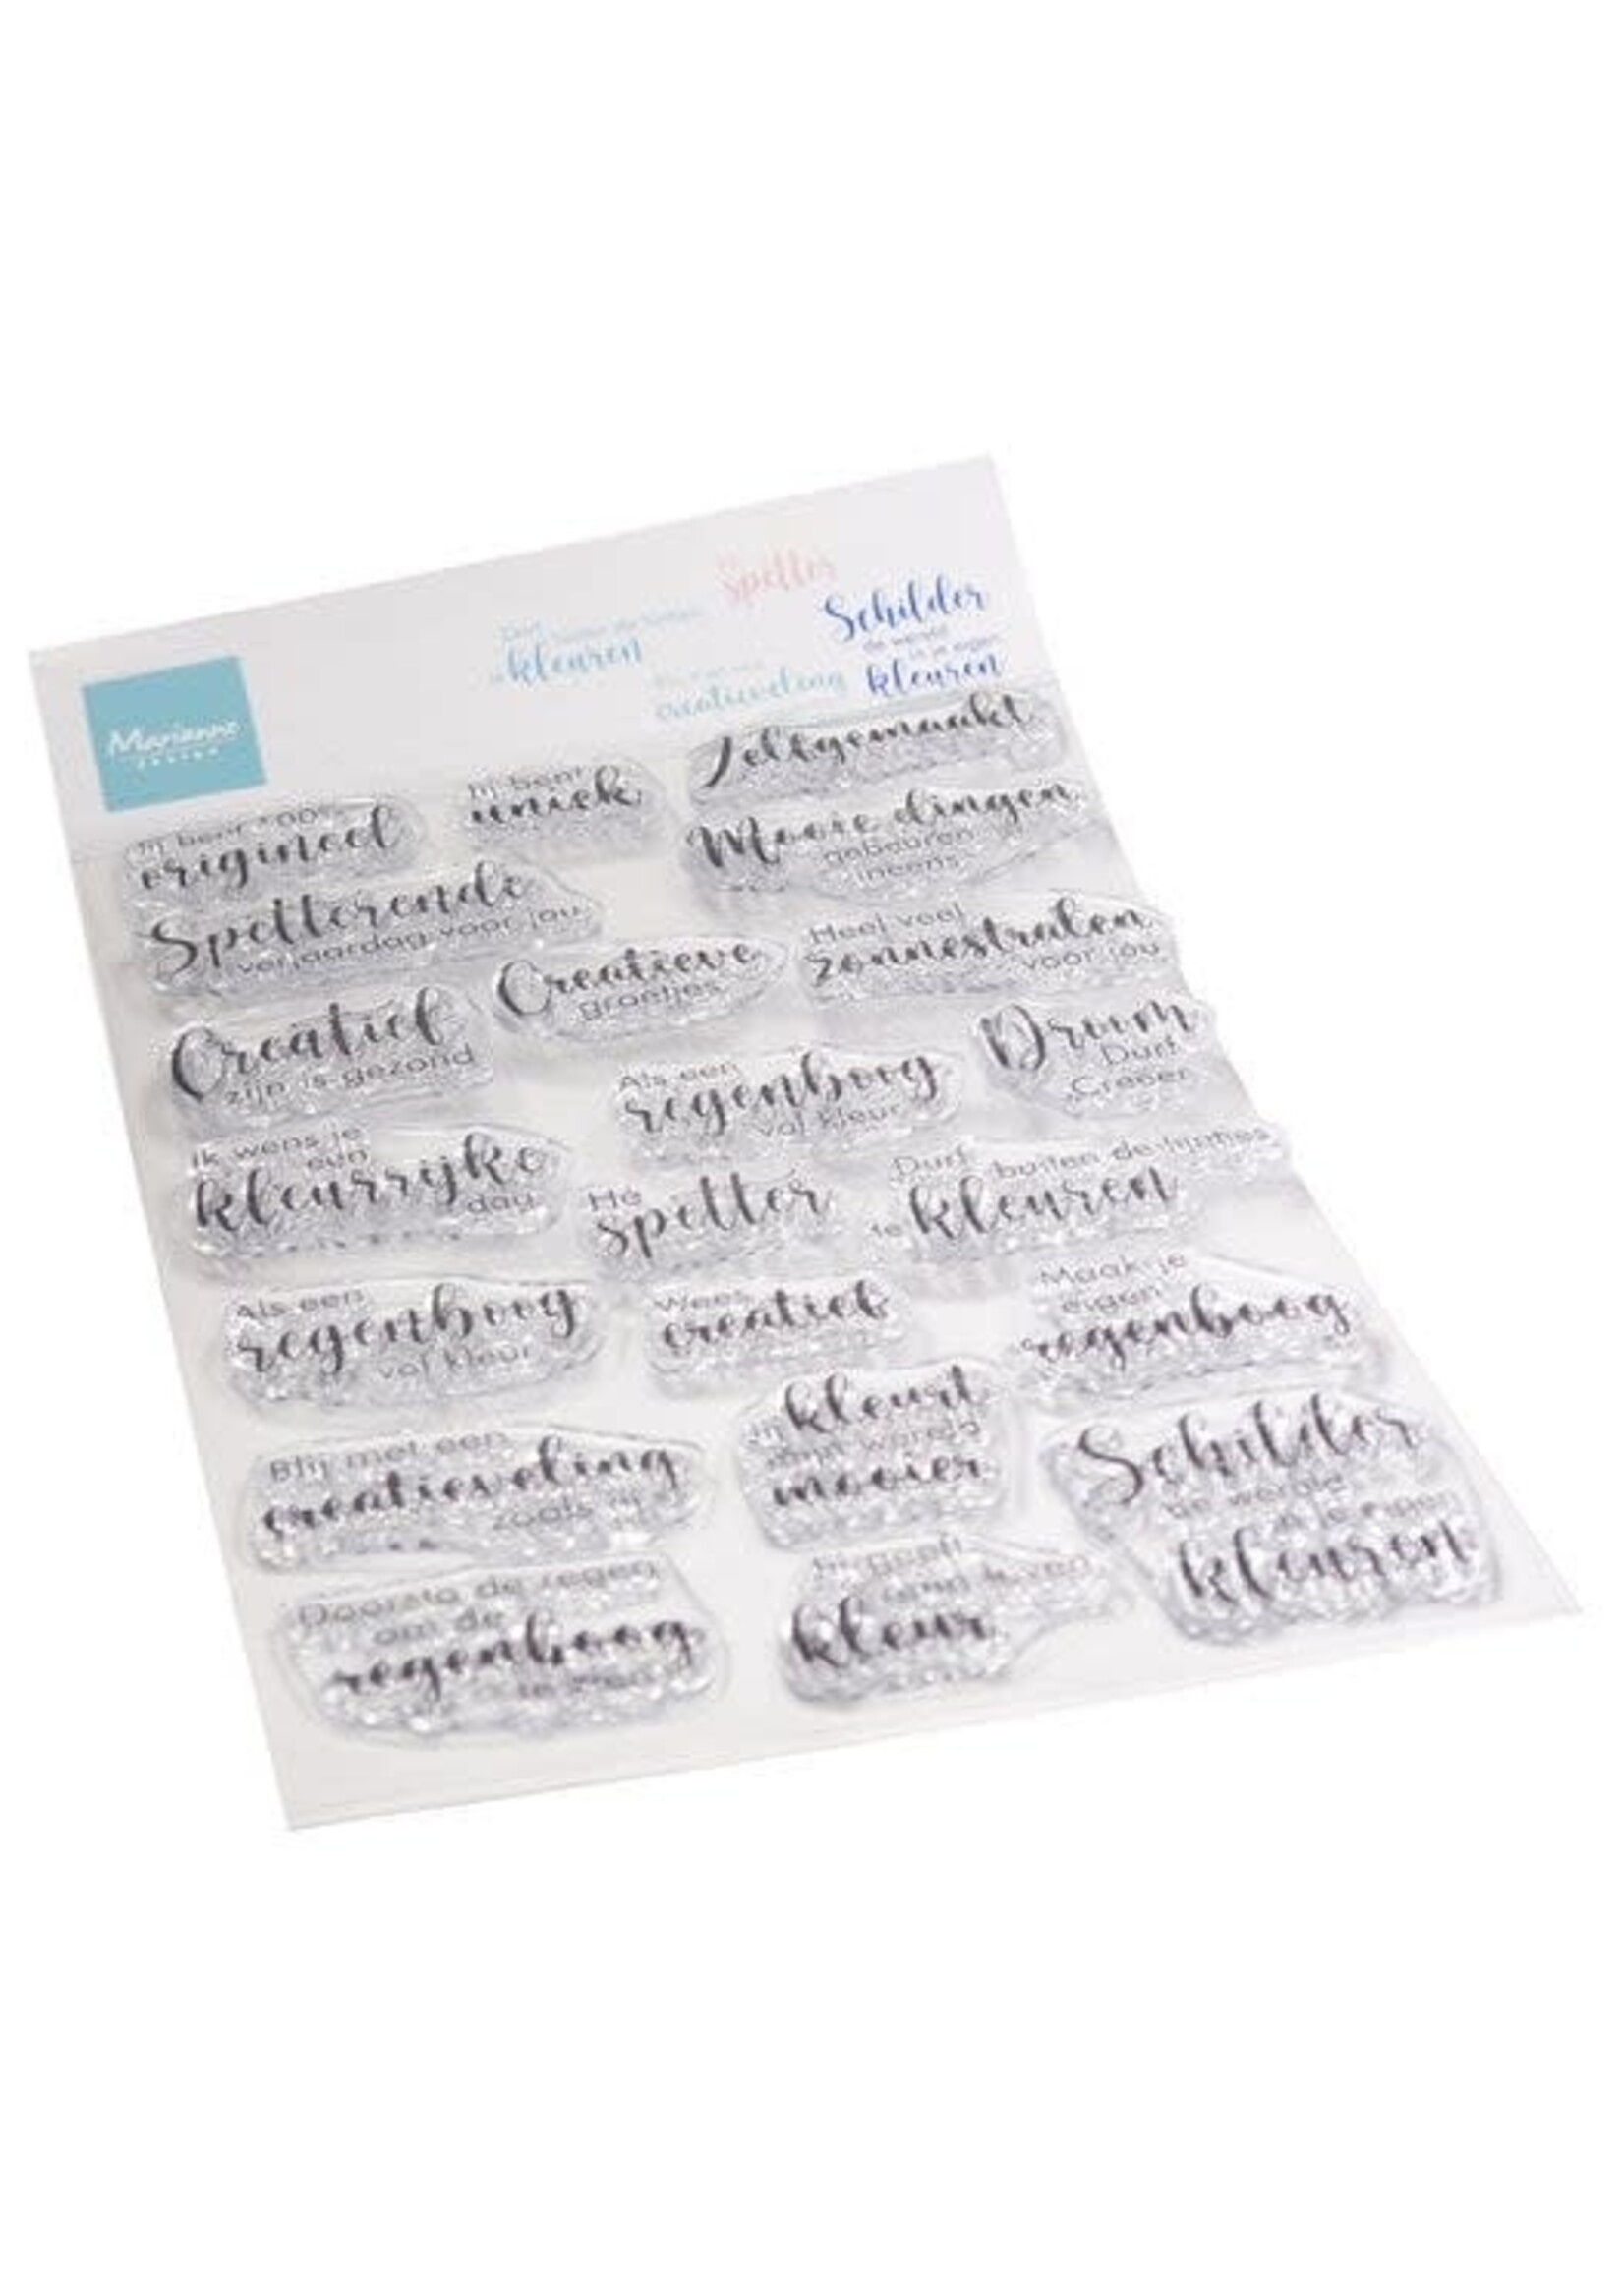 Spetter
Schilder
de wereld
in je eigen
kleuren
kleuren
creatieveling
Marianne
DESIGN
Zelfgemaakt
Jij bent
uniek
Jij bent 100%
origineel
Mooie dingen
gebeuren
ineens
Spetterende
verjaardag voor jou
Heel veel
zonnestralen
voor jou
Creatieve
groetjes
Creatief
zijn is gezond
Droom
Durf
Creëer
Als een
regenboog
vol kleur
Ik wens je
een
kleurrijke
dag
Hé
spetter
Durf
buiten de lijntjes
te kleuren
Als een
regenboog
vol kleur
Wees
creatief
Maak je
eigen
regenboog
Blij met een
creatieveling
zoals jij
Jij kleurt
mijn wereld
mooier
Schilder
de wereld
in je eigen
kleuren
Doorsta de regen
om de
regenboog
Jij geeft
mijn leven
kleur